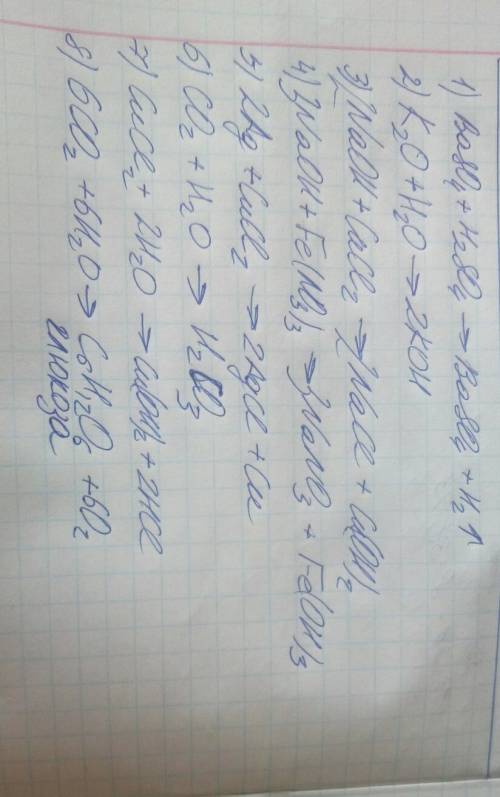 1) BaSO4 + H2SO4 → BaSO4 + H2↑
2) K2O + H2O → 2KOH
3) 2NaOH + CaCl2 → 2NaCl + Ca(OH)2
4) 3NaOH + Fe(NO3)3 → 3NaNO3 + Fe(OH)3
5) 2Ag + CuCl2 → 2AgCl + Cu
6) CO2 + H2O → H2CO3
7) CuCl2 + 2H2O → Cu(OH)2 + 2HCl
8) 6CO2 + 6H2O → C6H12O6 + 6O2
глюкоза